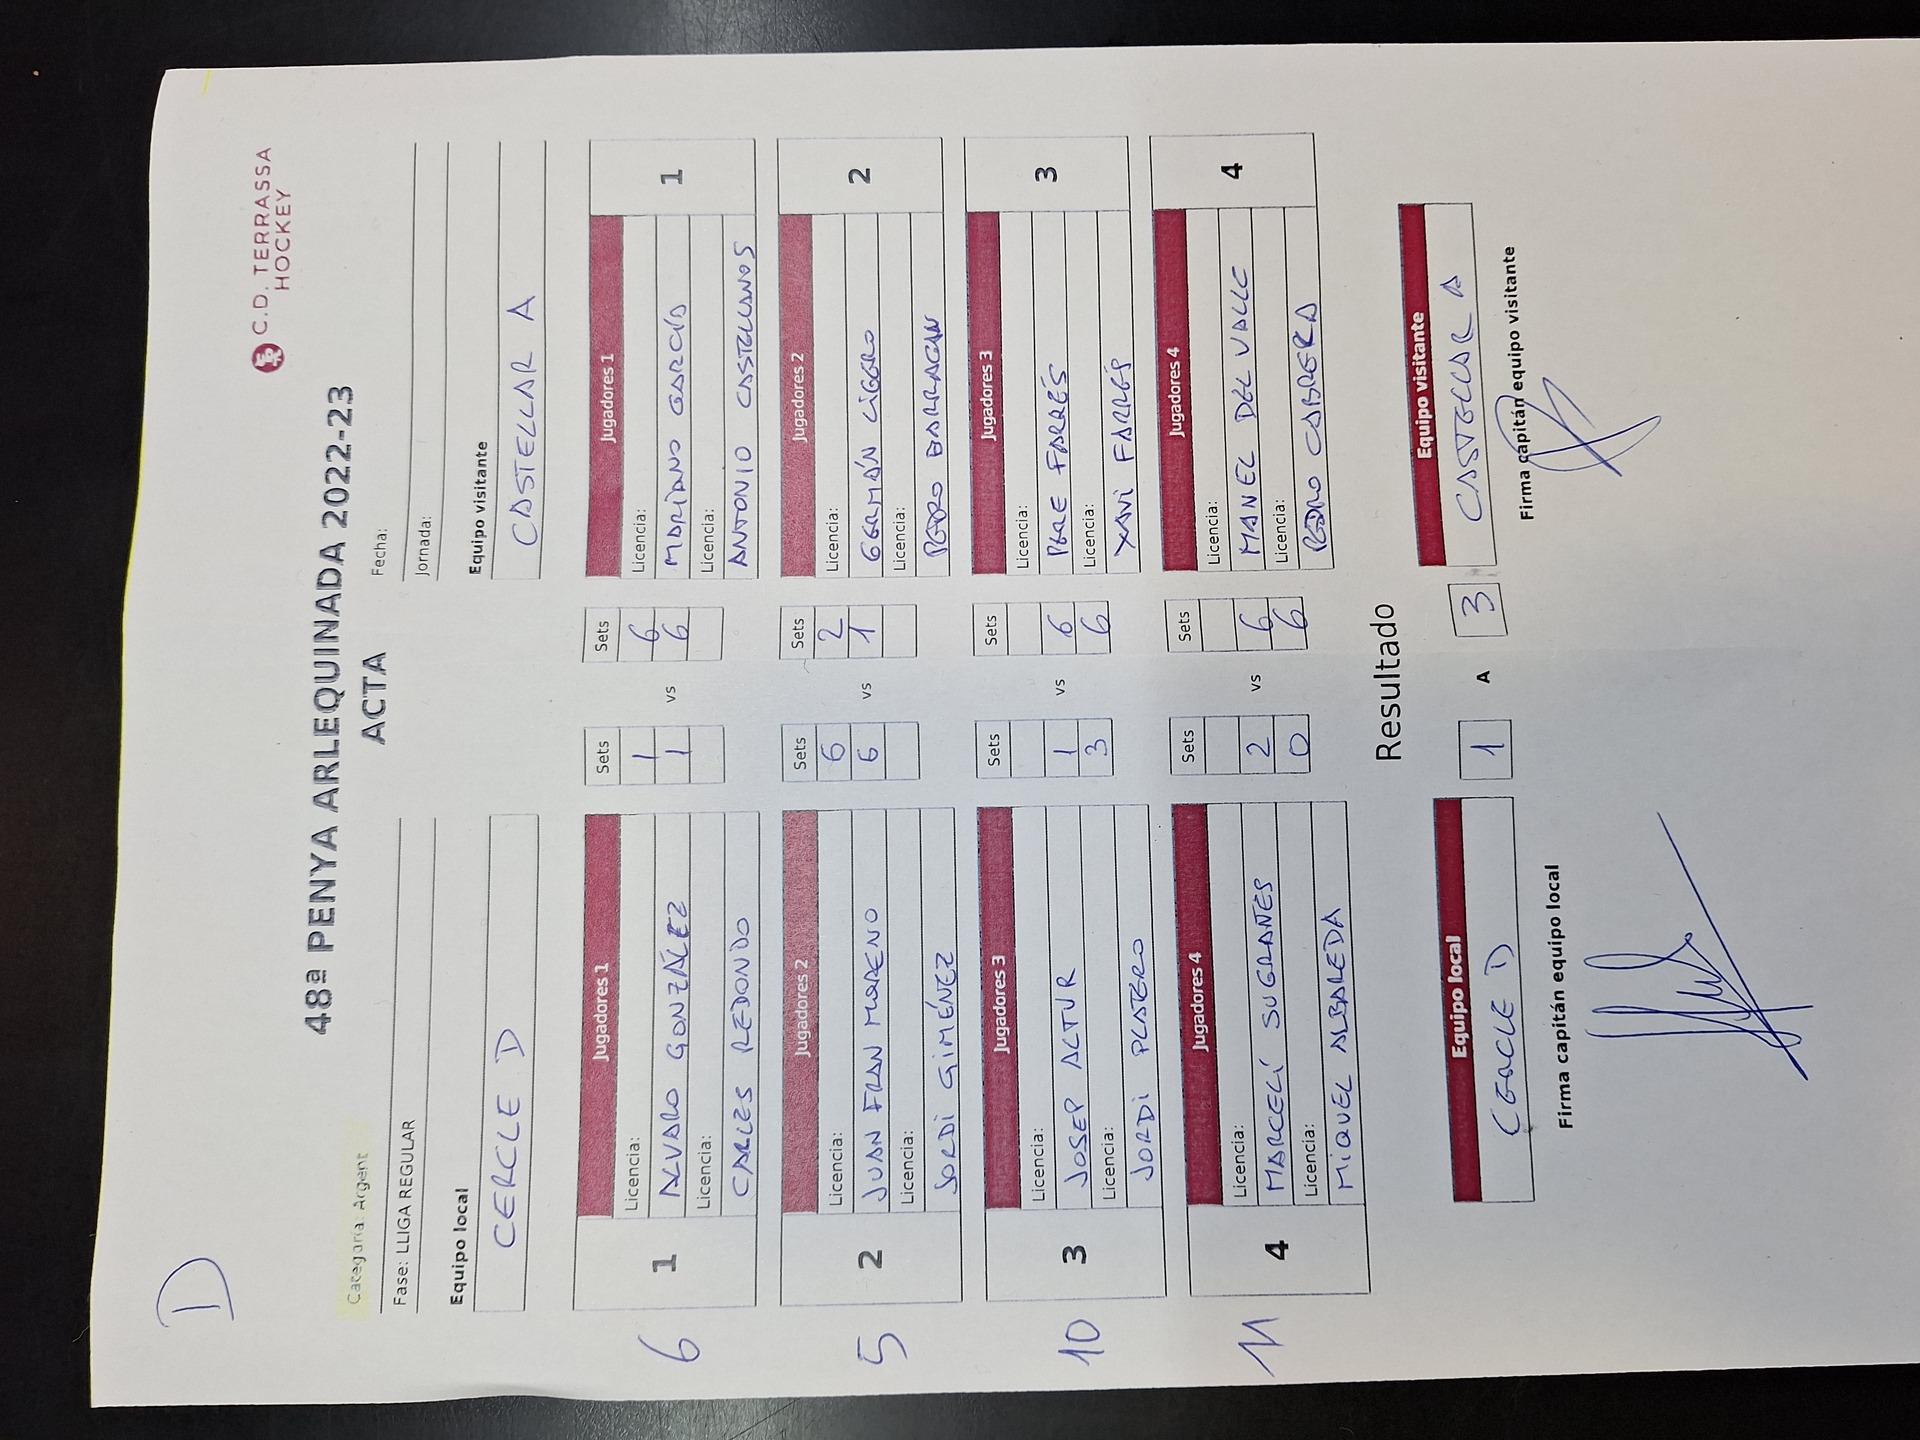 D
C.D. TERRASSA
HOCKEY
48ª PENYA ARLEQUINADA 2022-23
ACTA
Categoría: Argent
Fecha:
Fase: LLIGA REGULAR
Jornada:
Equipo local
Equipo visitante
CERCLE D
CASTELLAR A
Jugadores 1 Sets Sets Jugadores 1
6 1 Licencia: 1 vs 6 Licencia: 1
ALVARO GONZÁLEZ 1 6 MARIANO GARCÍA
Licencia: Licencia:
CARLES REDONDO ANTONIO CASTELLANOS
Jugadores 2 Sets Sets Jugadores 2
5 2 Licencia: 6 vs 2 Licencia: 2
JUAN FRAN MORENO 6 1 GERMÁN LIGERO
Licencia: Licencia:
JORDI GIMÉNEZ PEDRO BARRAGAN
Jugadores 3 Sets Sets Jugadores 3
10 3 Licencia: vs Licencia: 3
JOSEP ALTUR 1 6 PERE FARRÉS
Licencia: 3 6 Licencia:
JORDI PLATERO XAVI FARRÉS
Jugadores 4 Sets Sets Jugadores 4
11 4 Licencia: vs Licencia: 4
MARCELÍ SUGRANTES 2 6 MANEL DEL VALLE
Licencia: 0 6 Licencia:
MIQUEL ALBAREDA PEDRO CABRERA
Resultado
Equipo local Equipo visitante
CERCLE D 1 A 3 CASTELLAR A
Firma capitán equipo local Firma capitán equipo visitante